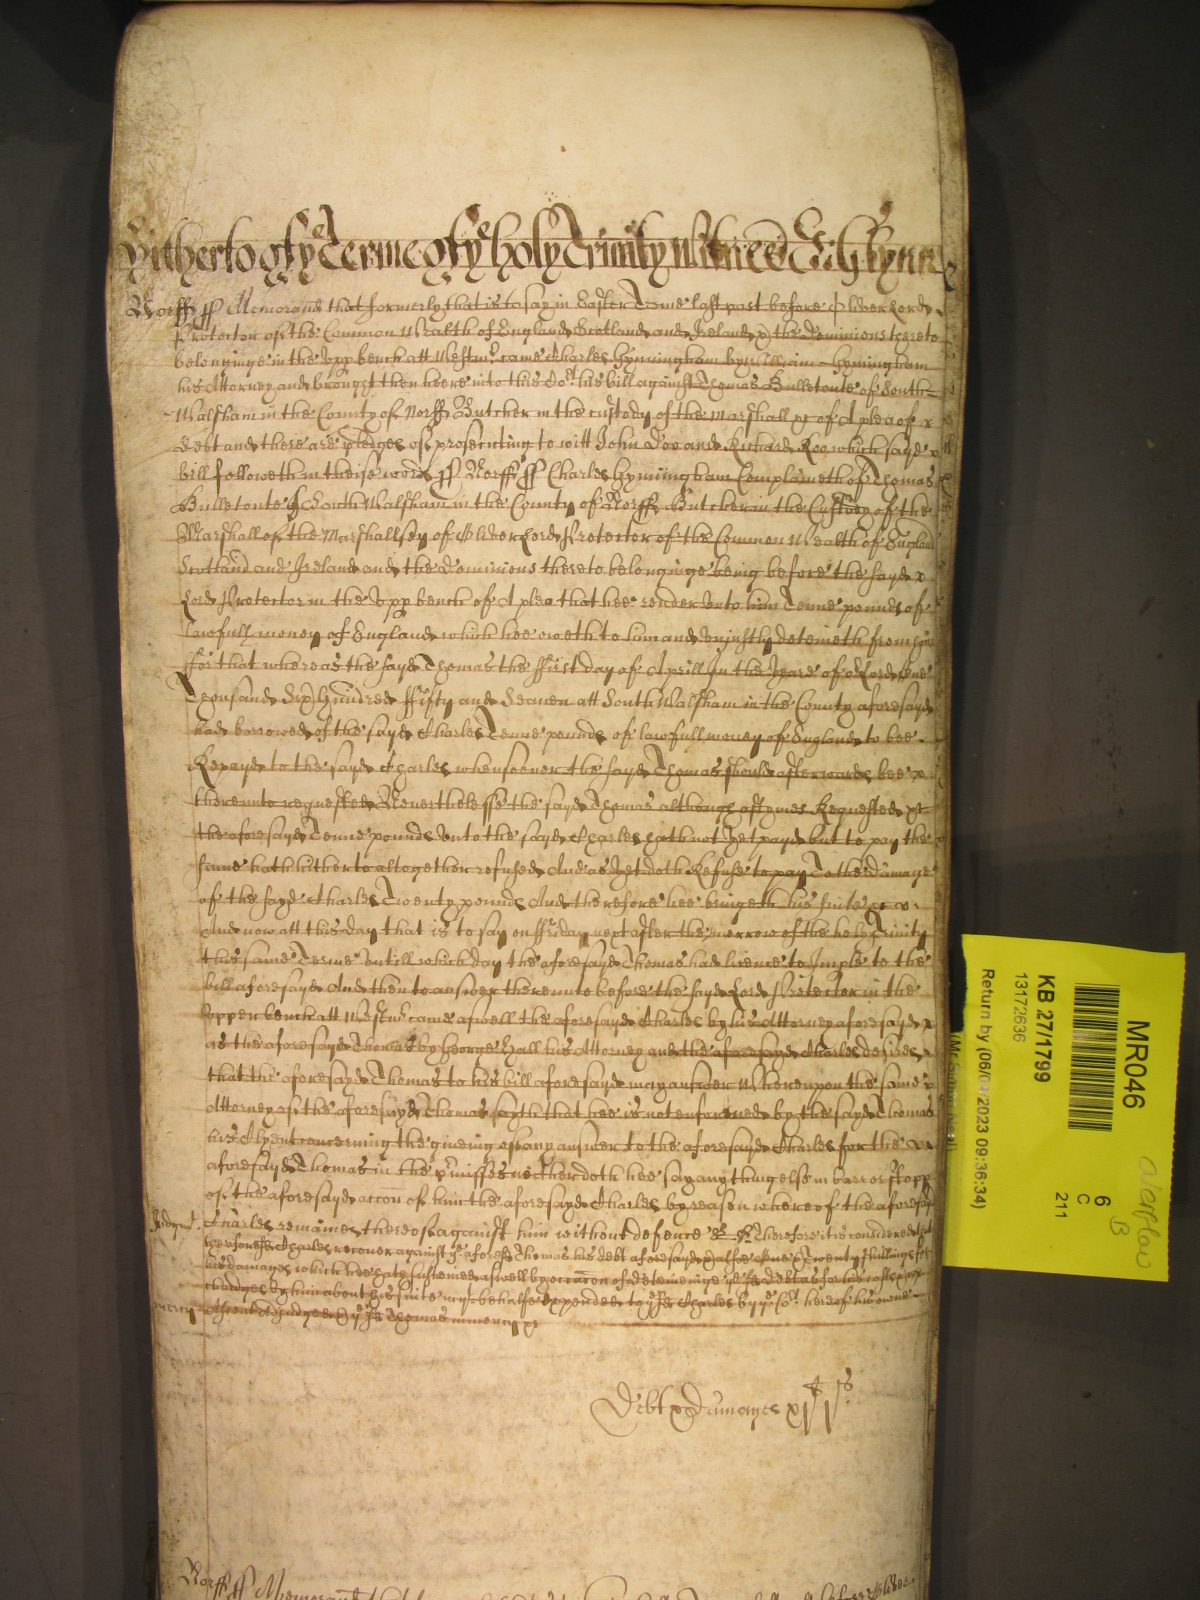 Hitherto of ye Terme of ye holy Trinity Witnes
Norff ss Memorand that formerly that is to say in Easter Terme last past before Oliver Lord
Protector of the Common Wealth of England Scotland and Ireland & the Dominions thereto
belonginge in the upp bench att Westmr came Charles Hyrningham by William Hyrningham
his Attorney and brought then heere into this Cort his bill against Thomas Bulletoute of South
Walsham in the County of Norff Butcher in the custody of the marshall &c of A plea of
debt and there are pledges of prosecuting to witt John Doo and Richard Roo which sayd
bill followeth in theise words ss Norff ss Charles Hyrningham Complaineth of Thomas
Bulletoute of South Walsham in the County of Norff Butcher in the Custody of the
Marshall of the Marshallsey of Oliver Lord Protector of the Common Wealth of England
Scotland and Ireland and the Dominions thereto belonginge being before the sayd
Lord Protector in the upp bench of A plea that hee render unto him Tenne pounds of
lawfull money of England which hee oweth to him and unjustly deteineth from him
ffor that whereas the sayd Thomas the ffirst day of Aprill in the yeare of or Lord One
Thousand Six Hundred ffifty and Seaven att South Walsham in the County aforesayd
had borrowed of the sayd Charles Tenne pounds of lawfull money of England to bee
Repayd to the sayd Charles whensoever the sayd Thomas should afterwards bee
thereunto requested Neverthelesse the sayd Thomas although oftymes Requested &c
the aforesayd Tenne pounds unto the sayd Charles hath not yet payd but to pay the
same hath hitherto altogether refused And as yet doth Refuse to pay To the damage
of the sayd Charles Twenty pounds And therefore hee bringeth his suite &c
And now att this day that is to say on ffriday next after the morrow of the holy Trinity
this same Terme untill which day the aforesayd Thomas had licence to Imple to the
bill aforesayd And then to answer thereunto before the sayd Lord Protector in the
upper bench att Westmr came aswell the aforesayd Charles by his Attorney aforesayd
as the aforesayd Thomas by George Hall his Attorney and the aforesayd Charles desires
that the aforesayd Thomas to his bill aforesayd may answer Whereupon the same
Attorney of the aforesayd Thomas sayth that hee is not enformed by the sayd Thomas
his Clyent concerning the giveing of any answer to the aforesayd Charles for the
aforesayd Thomas in the prmisses nether doth hee say any thing else in barr or stopp
of the aforesayd accon of him the aforesayd Charles by reason whereof the aforesayd
Judgmt Charles remaines thereof against him without defence &c Therefore it is considered that
the foresd Charles recover against ye aforesd Thomas his debt aforesayd & alsoe One & Twenty shillings for
his damages which hee hath susteined aswell by occacon of deteineinge ye sd debt as for his costs &
chardges by him about his suite in yt behalfe expended to ye sd Charles by ye Cort heere of his owne
mercy Assent Adjudged & ye sd Thomas in mercy &c
Debt & Damages xjli js
Norff ss Memorand that
MR046
KB 27/1799
13172636
Return by (06/04/2023 09:36:34)
6
C
211
B
overflow